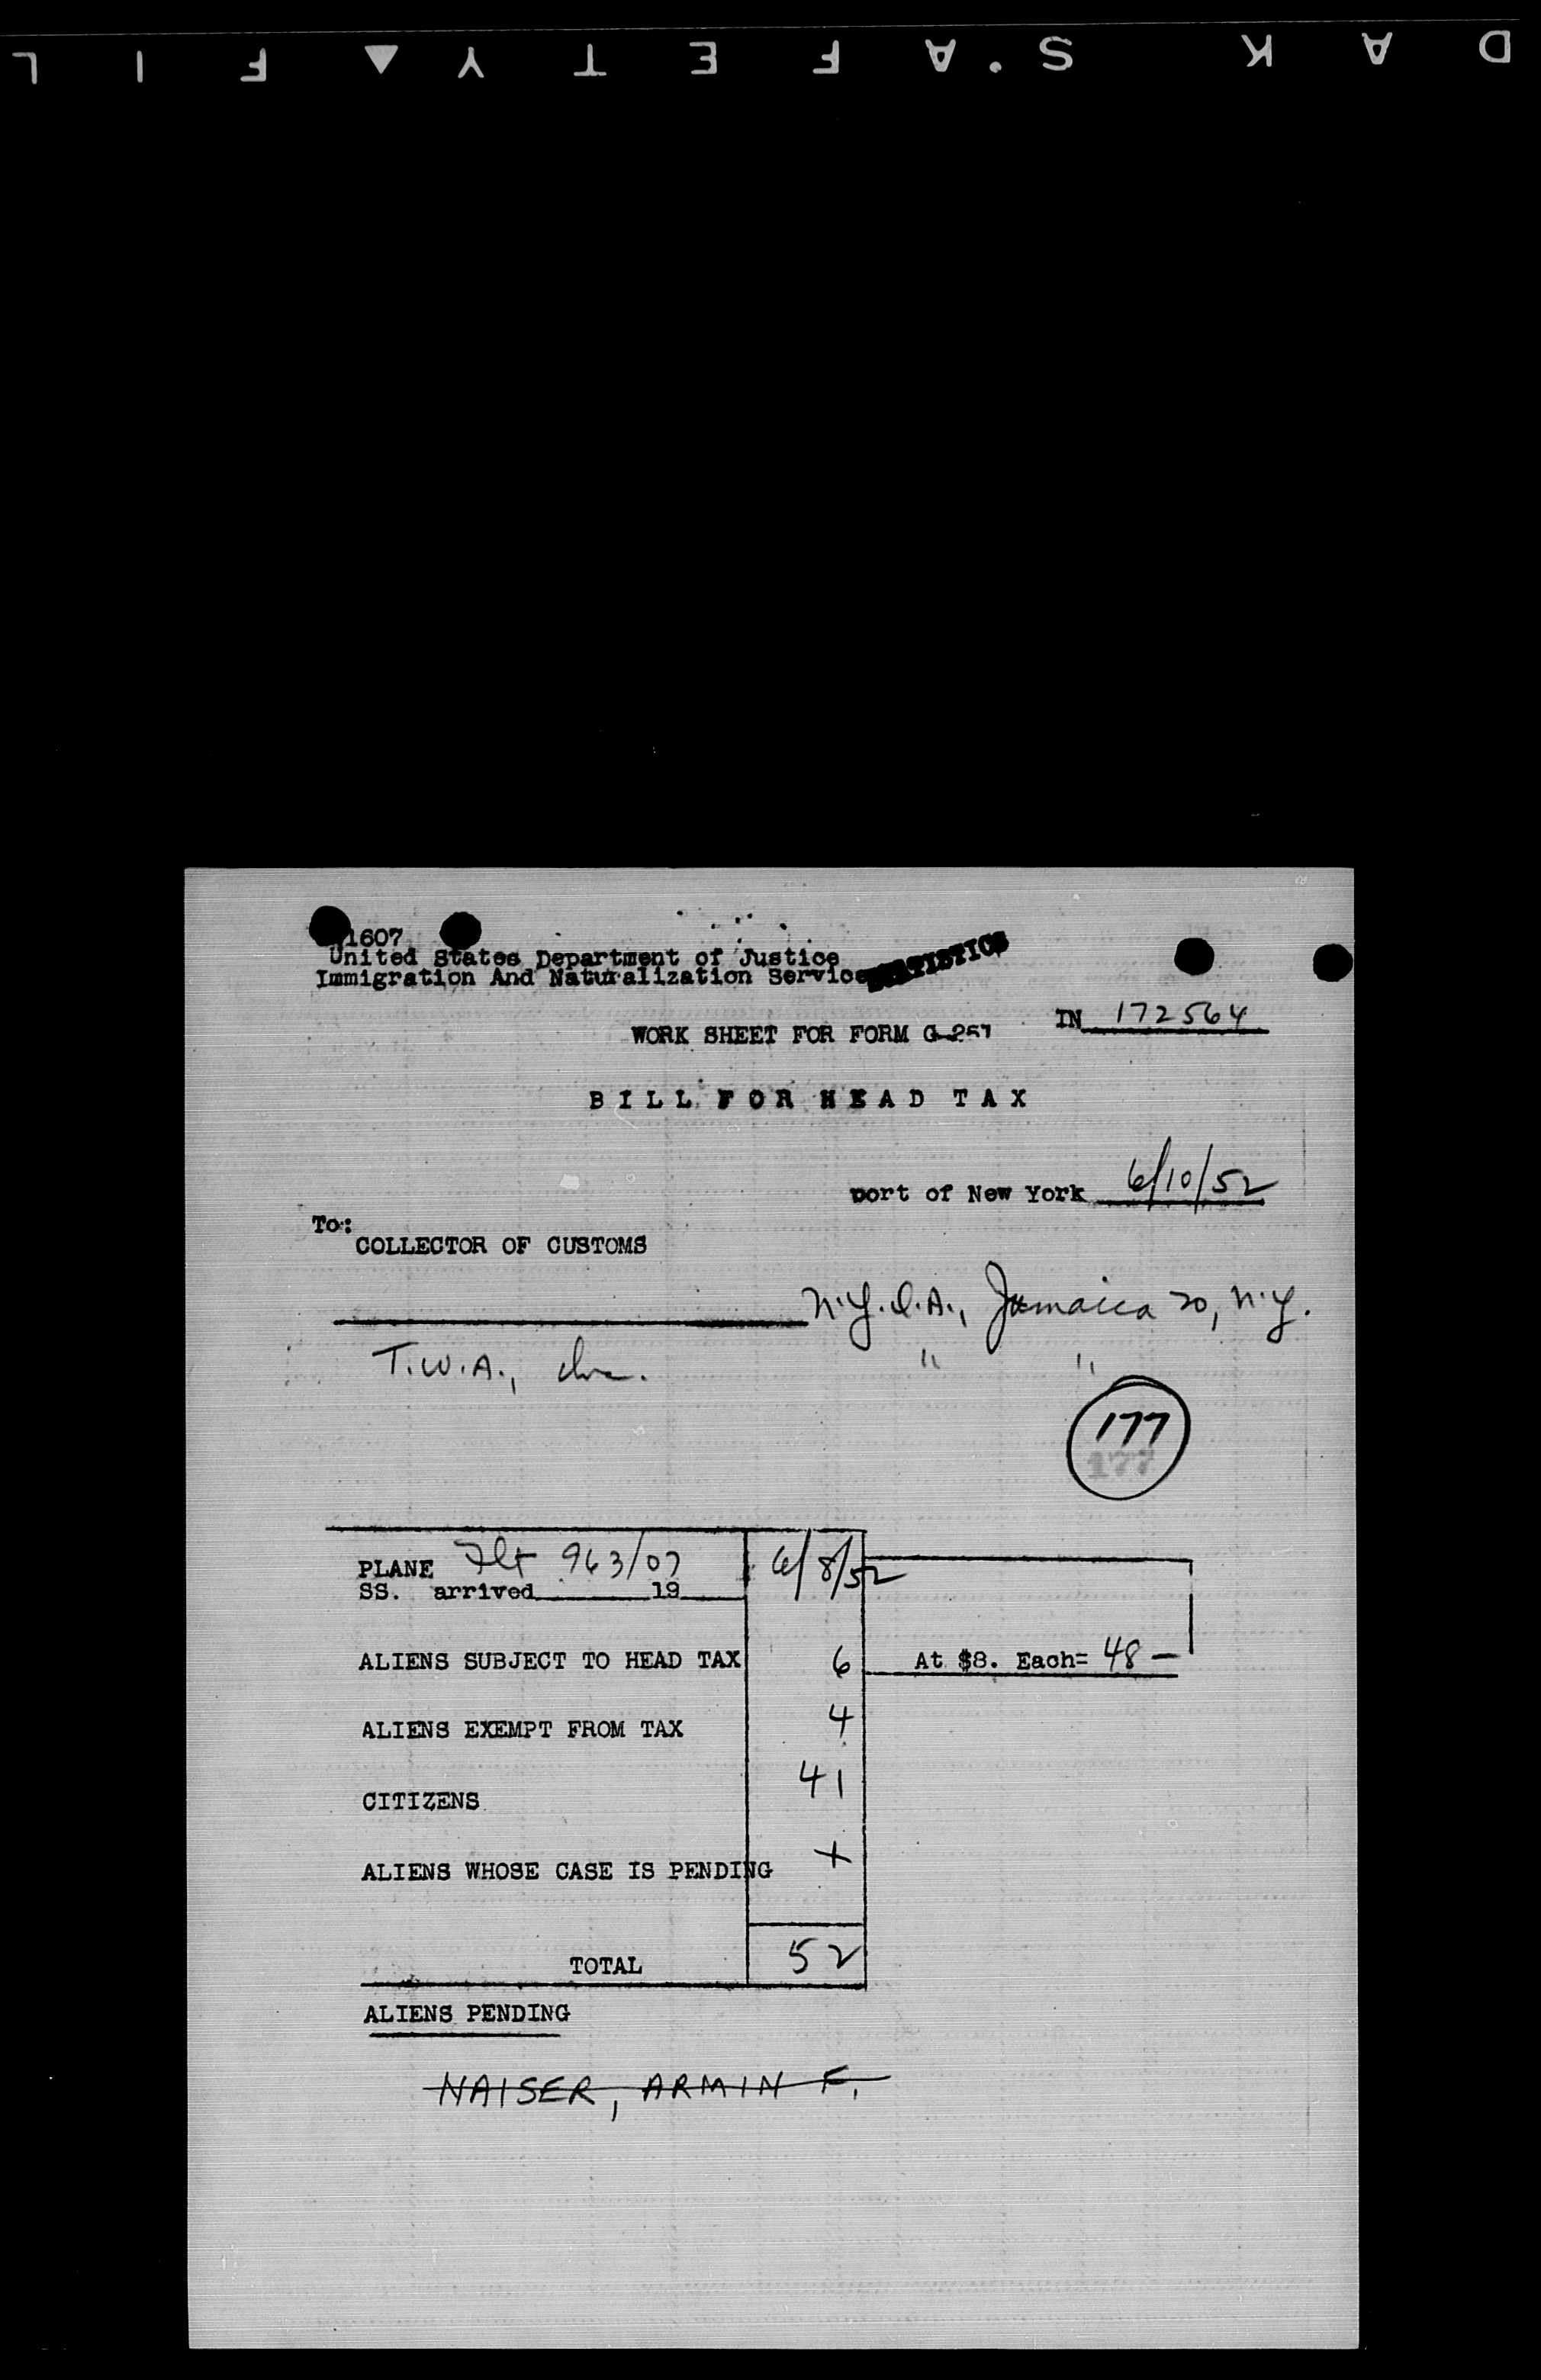 D A K S . A F E T Y ▲ F I L
1607
United States Department of Justice
Immigration And Naturalization Service
WORK SHEET FOR FORM G-257
IN 172564
BILL FOR HEAD TAX
port of New York 6/10/52
To:
COLLECTOR OF CUSTOMS
N.Y.I.A., Jamaica 20, N.Y.
T.W.A., Inc. " "
177
177
PLANE Flt 963/07 6/8/52
SS. arrived 19
ALIENS SUBJECT TO HEAD TAX 6 At $8. Each= 48 —
ALIENS EXEMPT FROM TAX 4
CITIZENS 41
ALIENS WHOSE CASE IS PENDING +
TOTAL 52
ALIENS PENDING
NAISER, ARMIN F.